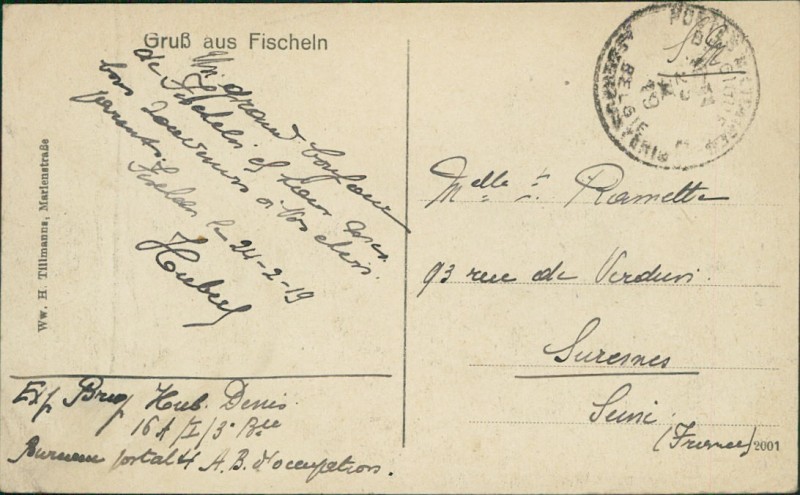 Gruß aus Fischeln
Un grand bonjour
de Fischeln et tous mes
bons souvenirs a vos chers
parents.
Fischeln le 24-2-19
Hubert
Ww. H. Tillmanns, Marienstraße
Exp Brig Hub. Denis
16A/I/3e Bie
Bureau postal 4 A.B. d'occupation.
S.M.
BELGIE
Melle J. Ramette
93 rue de Verdun.
Suresnes
Seine.
(France)
2001